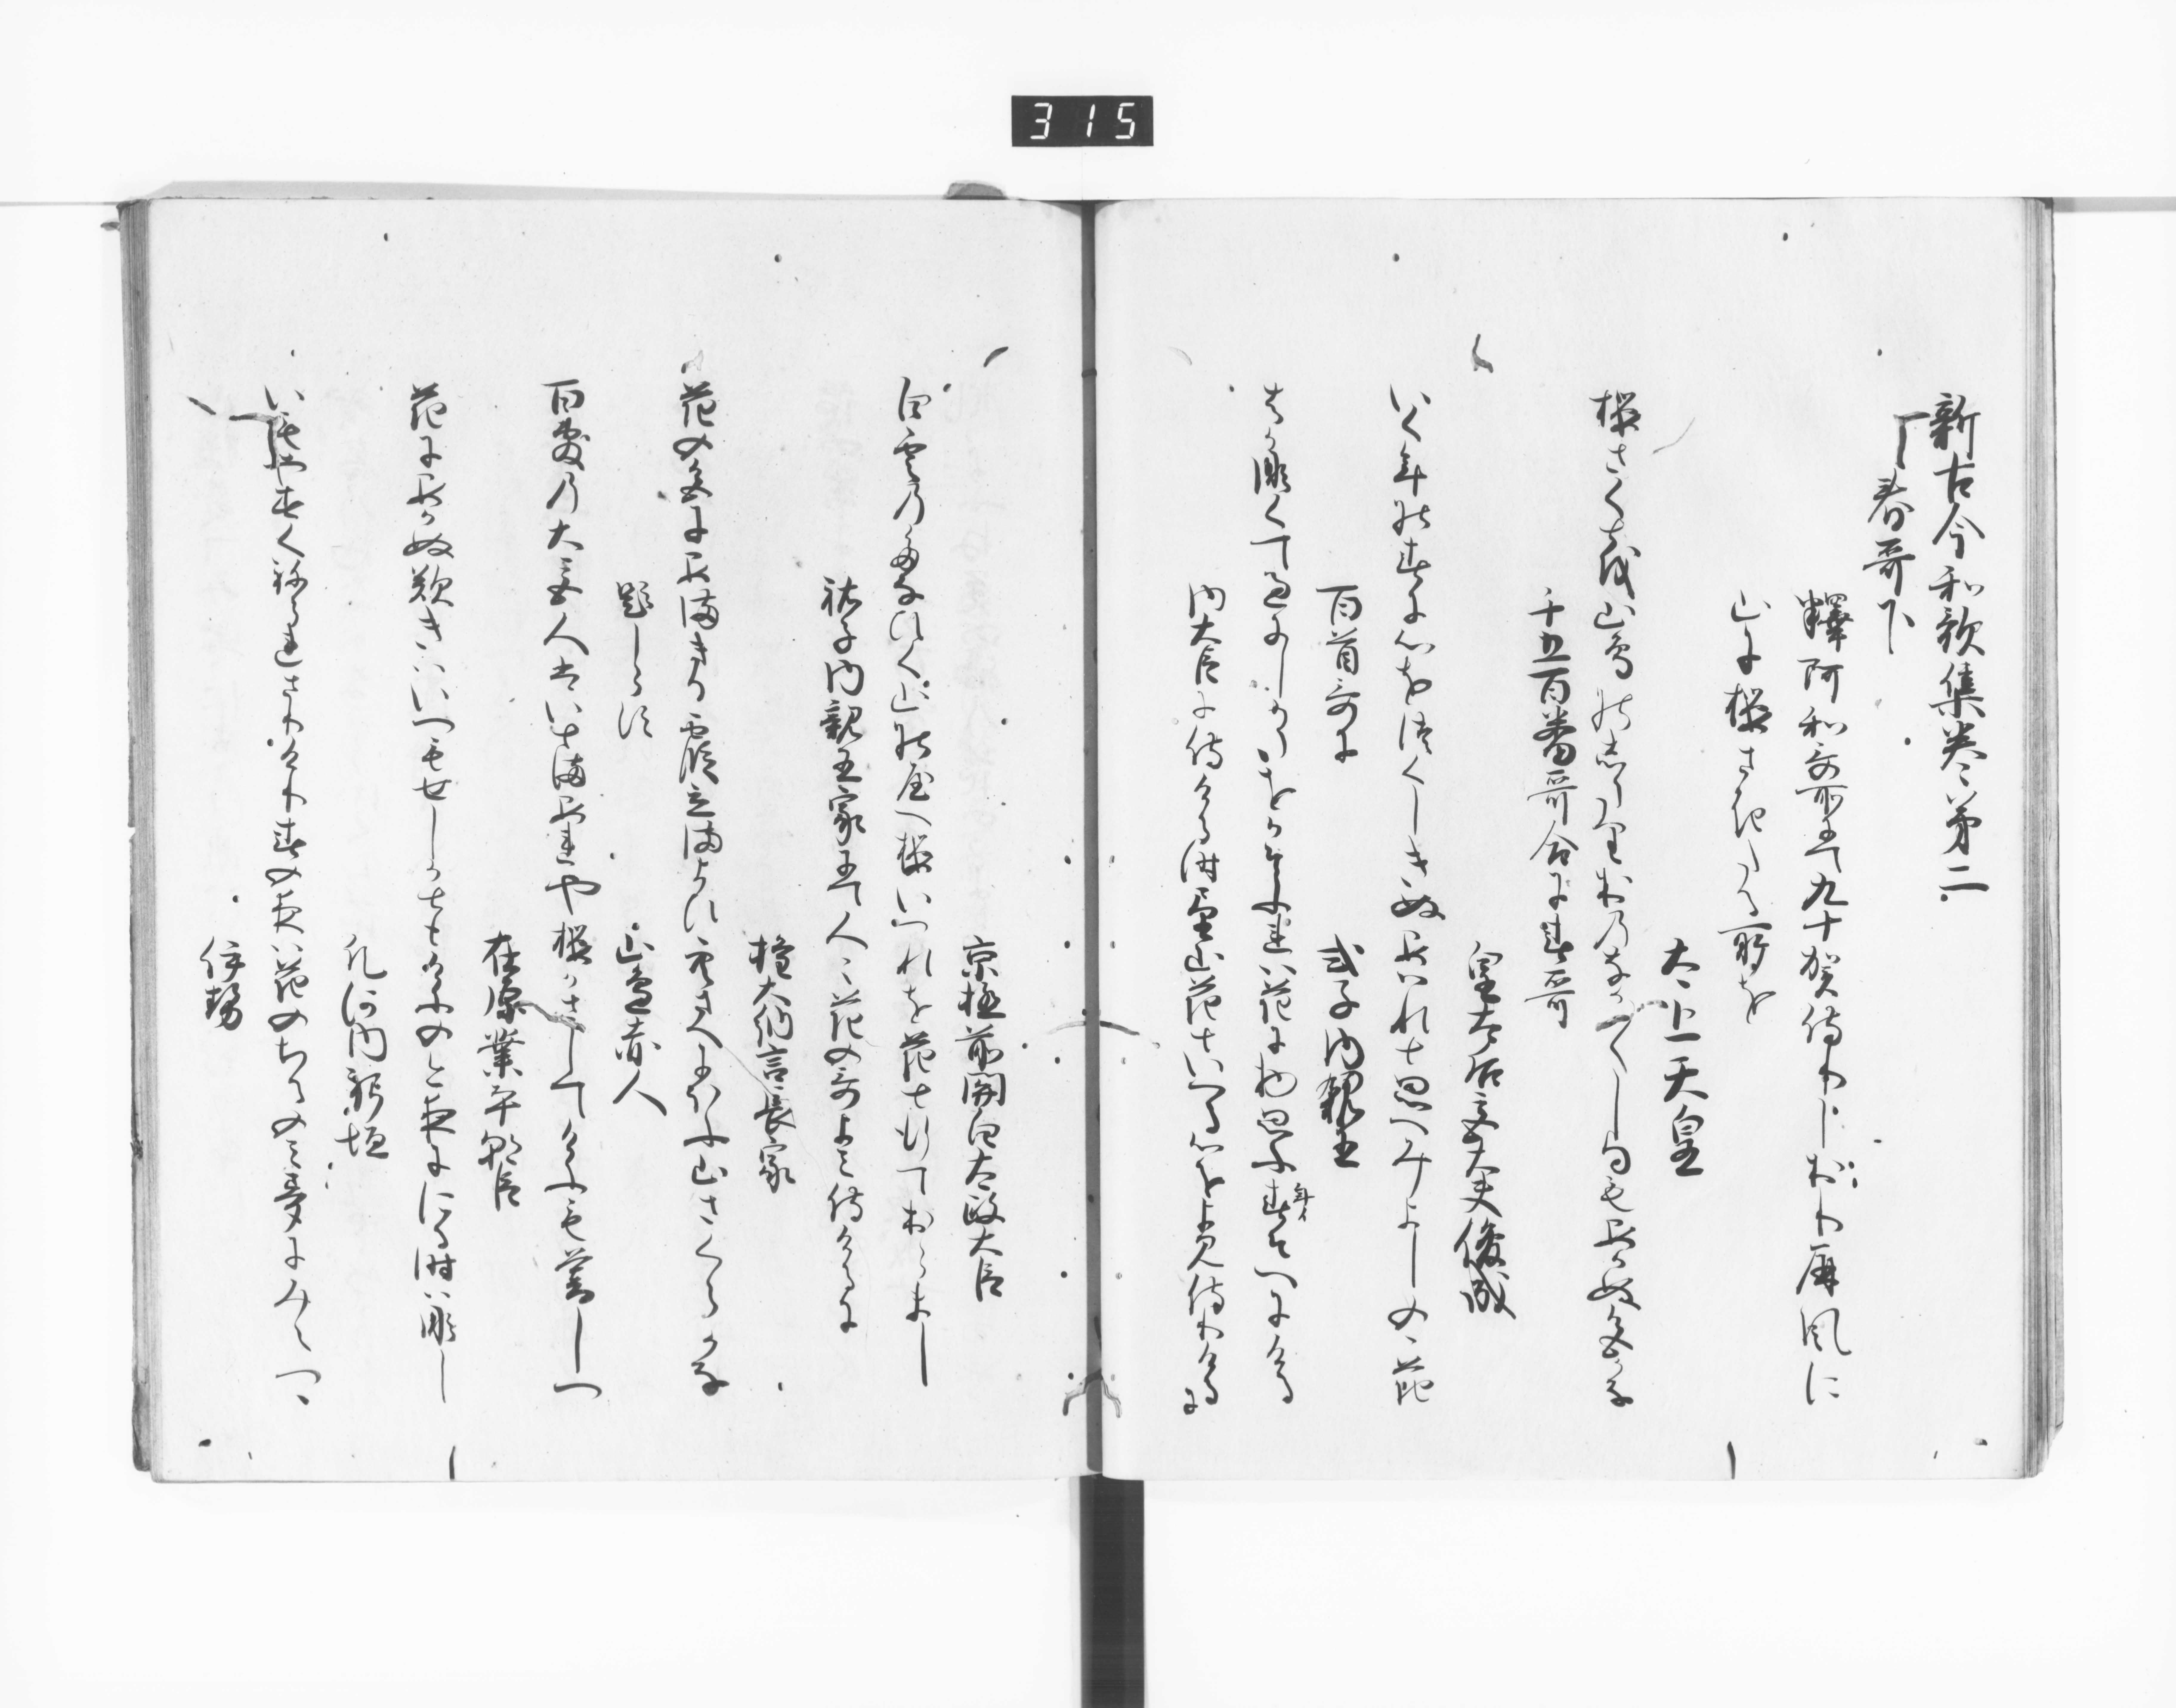 315
新古今和歌集巻第二
春哥下
釋阿和哥所にて九十賀侍りしおり屏風に
山に桜さきたる所を
太上天皇
桜さく遠山鳥のしたりおのなか〳〵し日もあかぬ色かな
千五百番哥合に春哥
皇太后宮大夫俊成
いく年の春に心をつくしきぬあはれと思へみよしのゝ花
百首哥に
式子内親王
はかなくて過にしかたをかそふれは花に物思ふ春そへにける
年イ
内大臣に侍ける時望山花といへる心をよみ侍りけるに
京極前関白太政大臣
白雲のたなひく山の八重桜いつれを花と行ておらまし
祐子内親王家にて人々花の哥よみ侍けるに
権大納言長家
花の色にあまきる霞立まよひ空さへ匂ふ山さくらかな
題しらす
山邊赤人
百敷の大宮人はいとまあれや桜かさしてけふも暮しつ
在原業平朝臣
花にあかぬ歎きはいつもせしかとも今日のこよひにゝる時は那し
凡河内躬恒
いもやすくねられさりけり春の夜は花のちるのみ夢にみえつゝ
伊勢